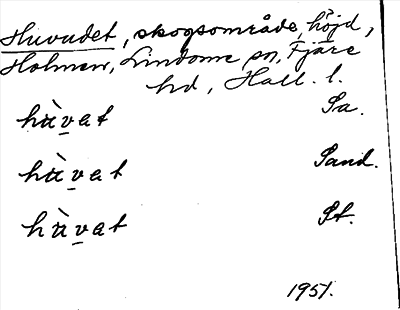 Huvudet, skogsområde, höjd,
Holmen, Lindome sn, Fjäre
hd, Hall. l.
hùvat Sa.
hùvat Sand.
hùvat St.
1951.